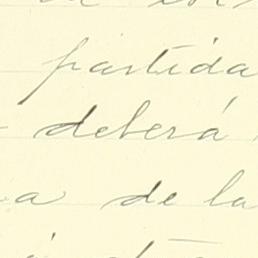 partida
deberá
a de la